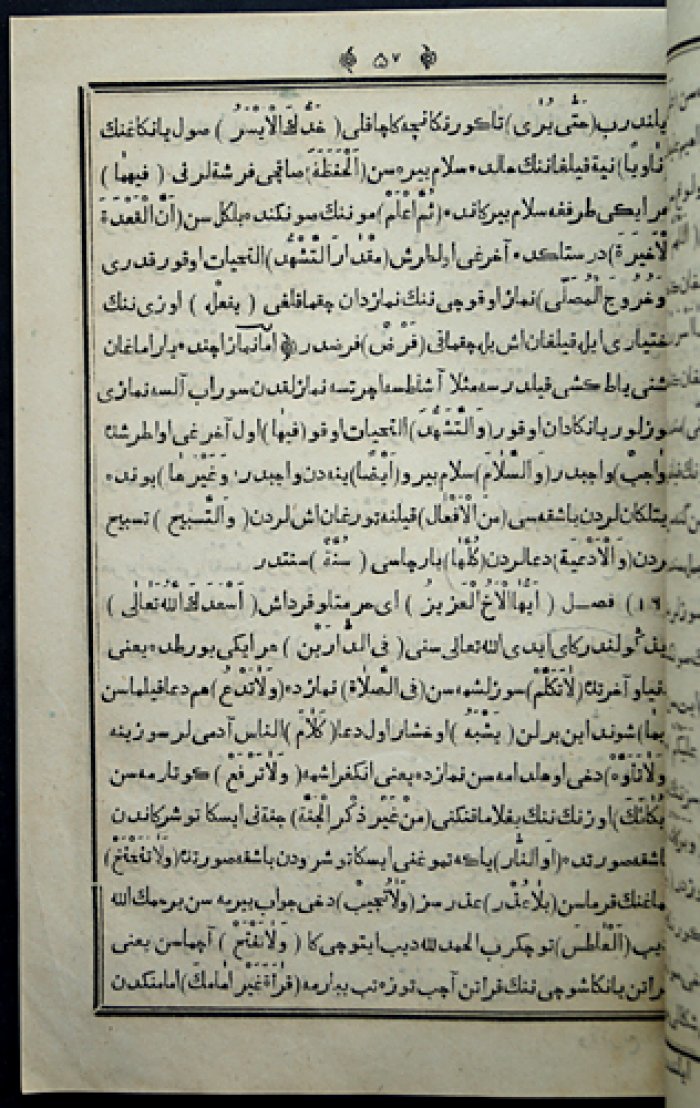 ٥٧
يلندرب (حَتَّى يُرٰى) تاكورنكانچه كاچاقلى (خَدُّكَ الْاَيْسَرُ) صول يانكاغنك
نَاوِياً) نية قيلغاننك حالده سلام بيره سن (اَلْحَفَظَةَ) صاقچى فرشته لرنى (فيهِمٰا)
هر ايكى طرفغه سلام بيركانده (ثُمَّ اعْلَمْ) موننك صونكنده بلكل سن (اَنَّ الْقَعْدَةَ
لْاَخيرَةَ) درستلكده آخرغى اولطرش (مِقْدٰارَ التَّشَهُّدِ) التحيات اوقور قدرى
وَخُرُوجَ الْمُصَلّى) نماز اوقوچى ننك نمازدان چقماقلغى (بِفِعْلِ) اوزى ننك
ختيارى ايله قيلغان اش بله چقماقى (فَرْضٌ) فرضدر امّا نماز اچنده ياراماغان
شنى ياطكشى قيلدرسه مثلا آشاطسه اچرتسه نمازلقدن سوراب آلسه نمازى
وزلور يانكادان اوقور (وَالتَّشَهُّدَ) التحيات اوقو (فيهٰا) اول آخرغى اولطرشده
وٰاجِبٌ) واجبدر (وَالسَّلاٰمَ) سلام بيرو (اَيْضًا) ينه دن واجبدر (وَغَيْرَهٰا) بونده
يتلكان لردن باشقه سى (مِنَ الْاَفْعٰالِ) قيلنه تورغان اش لردن (وَالتَّسْبيحِ) تسبيح
ردن (وَالْاَدْعِيَةِ) دعالردن (كُلُّهٰا) بارچاسى (سُنَّةٌ) سنتدر
١٦) فصل (اَيُّهَا الْاَخُ الْعَزيزُ) اى حرمتلو قرداش (اَسْعَدَكَ اللّٰهُ تَعَالٰى)
كولندركاى ايدى الله تعالى سنى (فِى الدّٰارَيْنِ) هر ايكى يورطده يعنى
نيا و آخرتده (لاٰتَكَلَّمْ) سوزلشمه سن (فِى الصَّلاٰةِ) نمازده (وَلاٰتَدْعُ) هم دعا قيلماسن
بِمٰا) شوند اين برلن (يَشْبَهُ) اوخشار اول دعا (كَلاٰمَ) الناس آدمى لر سوزينه
وَلاٰتَأَوَّهْ) دغى اوهلدامه سن نمازده يعنى انكغراشمه (وَلاٰتَرْفَعْ) كوتارمه سن
بُكٰائَكَ) اوزنك ننك يغلاماقنكنى (مِنْ غَيْرِ ذِكْرِ الْجَنَّةِ) جنة نى ايسكا توشركاندن
باشقه صورتده (اَوِالنّٰارِ) ياكه تموغنى ايسكا توشرودن باشقه صورتده (وَلاٰتَتَنَحْنَحْ)
ماغنك قرماسن (بِلاٰ عُذْرٍ) عذرسز (وَلاٰتُجيبُ) دغى جواب بيرمه سن يرحمك الله
ديب (اَلْعٰاطِسَ) توچكرب الحمد لله ديب ايتوچى كا (وَلاٰتَفْتَحْ) آچماسن يعنى
قرائن يانكلشوچى ننك قرائن آچب توزه تب يبارمه (قِرٰأَةَ غَيْرِ اِمٰامِكَ) امامنكدن